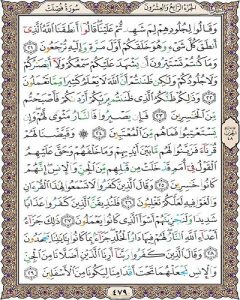 الجزء الرابع والعشرون سورة فصلت
وقالوا لجلودهم لم شهدتم علينا قالوا أنطقنا الله الذي
أنطق كل شيء وهو خلقكم أول مرة وإليه ترجعون ٢١
وما كنتم تستترون أن يشهد عليكم سمعكم ولا أبصاركم
ولا جلودكم ولكن ظننتم أن الله لا يعلم كثيرا مما تعملون ٢٢
وذلكم ظنكم الذي ظننتم بربكم أرداكم فأصبحتم
من الخاسرين ٢٣ فإن يصبروا فالنار مثوى لهم وإن
يستعتبوا فما هم من المعتبين ٢٤ وقيضنا لهم
قرناء فزينوا لهم ما بين أيديهم وما خلفهم وحق عليهم
القول في أمم قد خلت من قبلهم من الجن والإنس إنهم
كانوا خاسرين ٢٥ وقال الذين كفروا لا تسمعوا لهذا القرآن
والغوا فيه لعلكم تغلبون ٢٦ فلنذيقن الذين كفروا عذابا
شديدا ولنجزينهم أسوأ الذي كانوا يعملون ٢٧ ذلك جزاء
أعداء الله النار لهم فيها دار الخلد جزاء بما كانوا بآياتنا يجحدون ٢٨
وقال الذين كفروا ربنا أرنا اللذين أضلانا من الجن
والإنس نجعلهما تحت أقدامنا ليكونا من الأسفلين ٢٩
٤٧٩